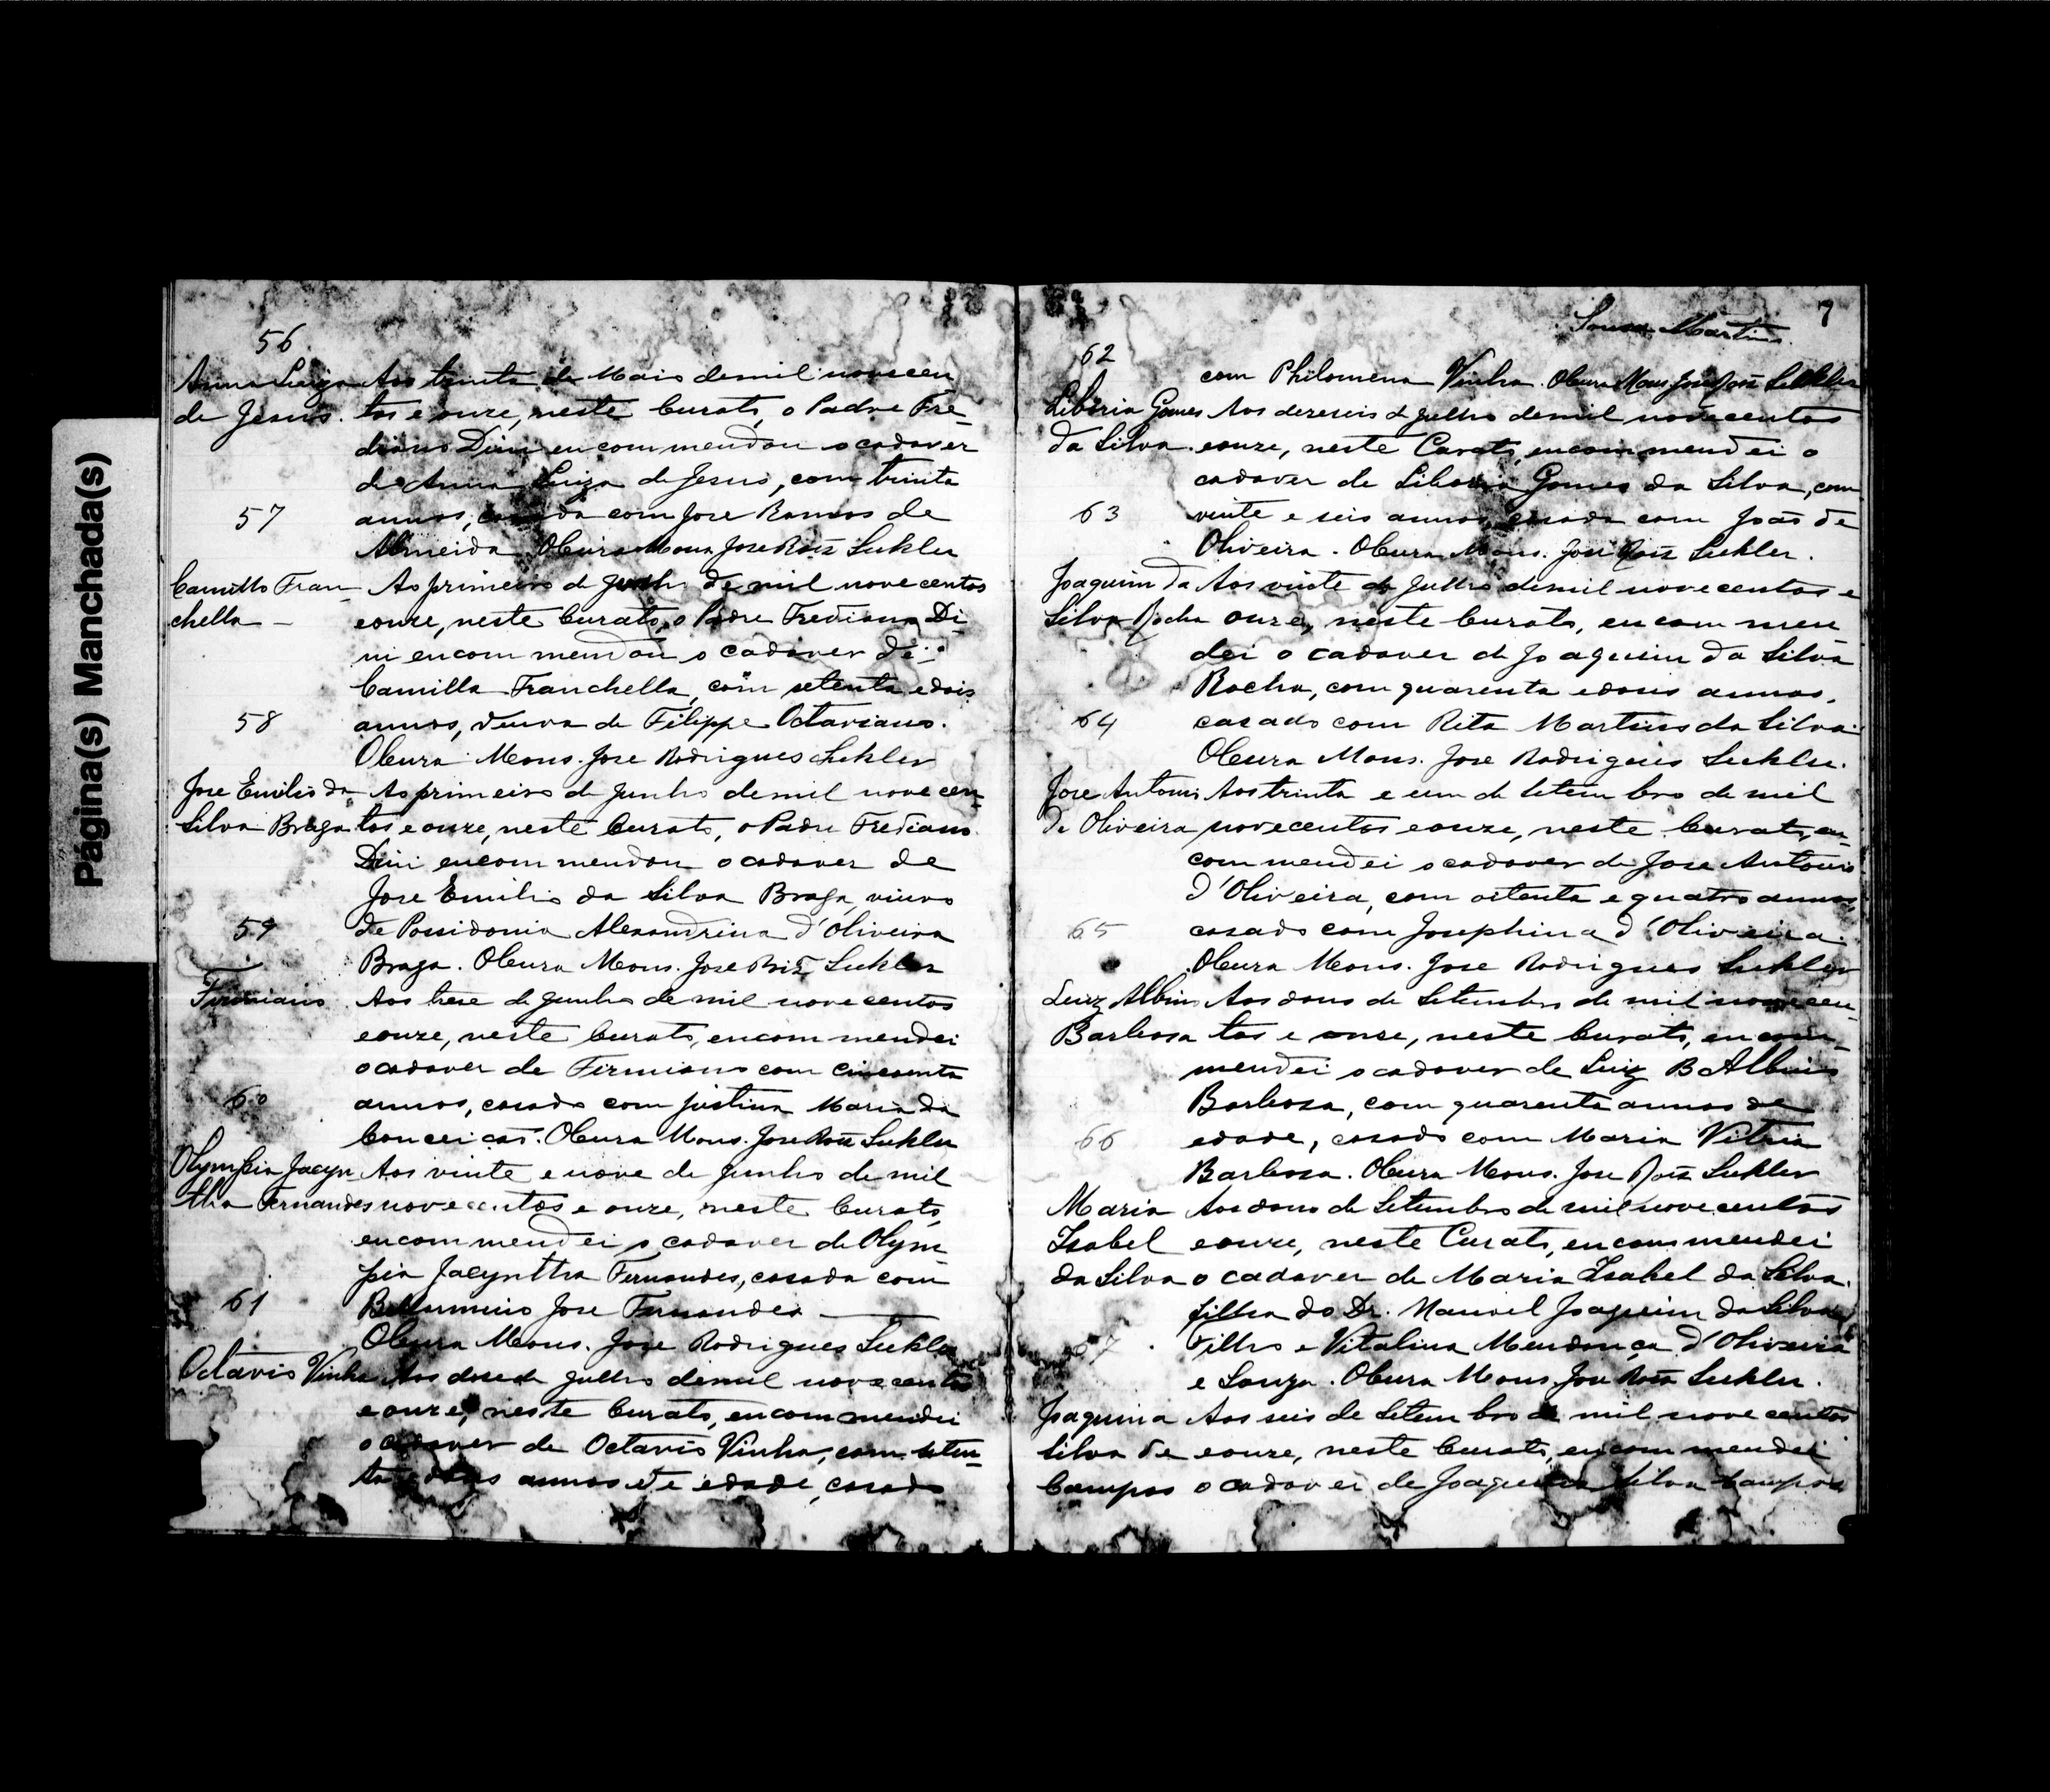 Página(s) Manchada(s)
56
Anna Luiza Aos trinta de Maio de mil novecen
de Jesus. tos e onze, neste Curato, o Padre Fre-
diano Dini encommendou o cadaver
de Anna Luiza de Jesus, com trinta
57 annos, casada com Jose Ramos de
Almeida. O Cura Mons. Jose Roiz
Camillo Fran- Ao primeiro de Junho de mil novecentos
chella - e onze, neste Curato, o Padre Frediano Di-
ni encommendou o cadaver de
Camilla Franchella, com setenta e dois
58 annos, viuva de Filippe Octaviano.
O Cura Mons. Jose Rodrigues
Jose Emilio da Ao primeiro de Junho de mil novecen-
Silva Braga tos e onze, neste Curato, o Padre Frediano
Dini encommendou o cadaver de
Jose Emilio da Silva Braga, viuvo
59 de Possidonia Alexandrina d'Oliveira
Braga. O Cura Mons. Jose Roiz
Firmiano Aos treze de Junho de mil novecentos
e onze, neste Curato, encommendei
o cadaver de Firmiano com cincoenta
60 annos, casado com Justina Maria da
Conceicão. O Cura Mons. Jose Roiz
Olympia Jacyn Aos vinte e nove de Junho de mil
tha Fernandes novecentos e onze, neste Curato,
encommendei o cadaver de Olym
pia Jacyntha Fernandes, casada com
61 Jose Fernandes
O Cura Mons. Jose Rodrigues
Octavio Vinha Aos doze de Julho de mil novecentos
e onze, neste Curato, encommendei
o cadaver de Octavio Vinha, com seten-
ta e dous annos de edade, casado
7
Souza Martins
62
com Philomena Vinha. O Cura Mons Jose Roiz
Liboria Gomes Aos dezeseis de Julho de mil novecentos
da Silva e onze, neste Curato, encommendei o
cadaver de Liboria Gomes da Silva, com
63 vinte e seis annos, casada com João de
Oliveira. O Cura Mons. José Roiz
Joaquim da Aos vinte de Julho de mil novecentos e
Silva Rocha onze, neste Curato, encommen
dei o cadaver de Joaquim da Silva
Rocha, com quarenta e dous annos,
64 casado com Rita Martins da Silva.
O Cura Mons. Jose Rodrigues
Jose Antonio Aos trinta e um de Setembro de mil
de Oliveira novecentos e onze, neste Curato, en-
commendei o cadaver de Jose Antonio
d'Oliveira, com oitenta e quatro annos,
65 casado com Josephina d'Oliveira.
O Cura Mons. Jose Rodrigues
Luiz Albino Aos dous de Setembro de mil novecen-
Barbosa tos e onze, neste Curato, encom-
mendei o cadaver de Luiz B Albino
Barbosa, com quarenta annos de
66 edade, casado com Maria
Barbosa. O Cura Mons. Jose Roiz
Maria Aos dous de Setembro de mil novecentos
Isabel e onze, neste Curato, encommendei
da Silva o cadaver de Maria Isabel da Silva.
filha do Dr. Manoel Joaquim da Silva
67 Filho e Vitalina Mendonça d'Oliveira
e Souza. O Cura Mons Jose Roiz
Joaquina Aos seis de Setembro de mil novecentos
Silva de e onze, neste Curato, encommendei
Campos o cadaver de Joaquina Silva Campos